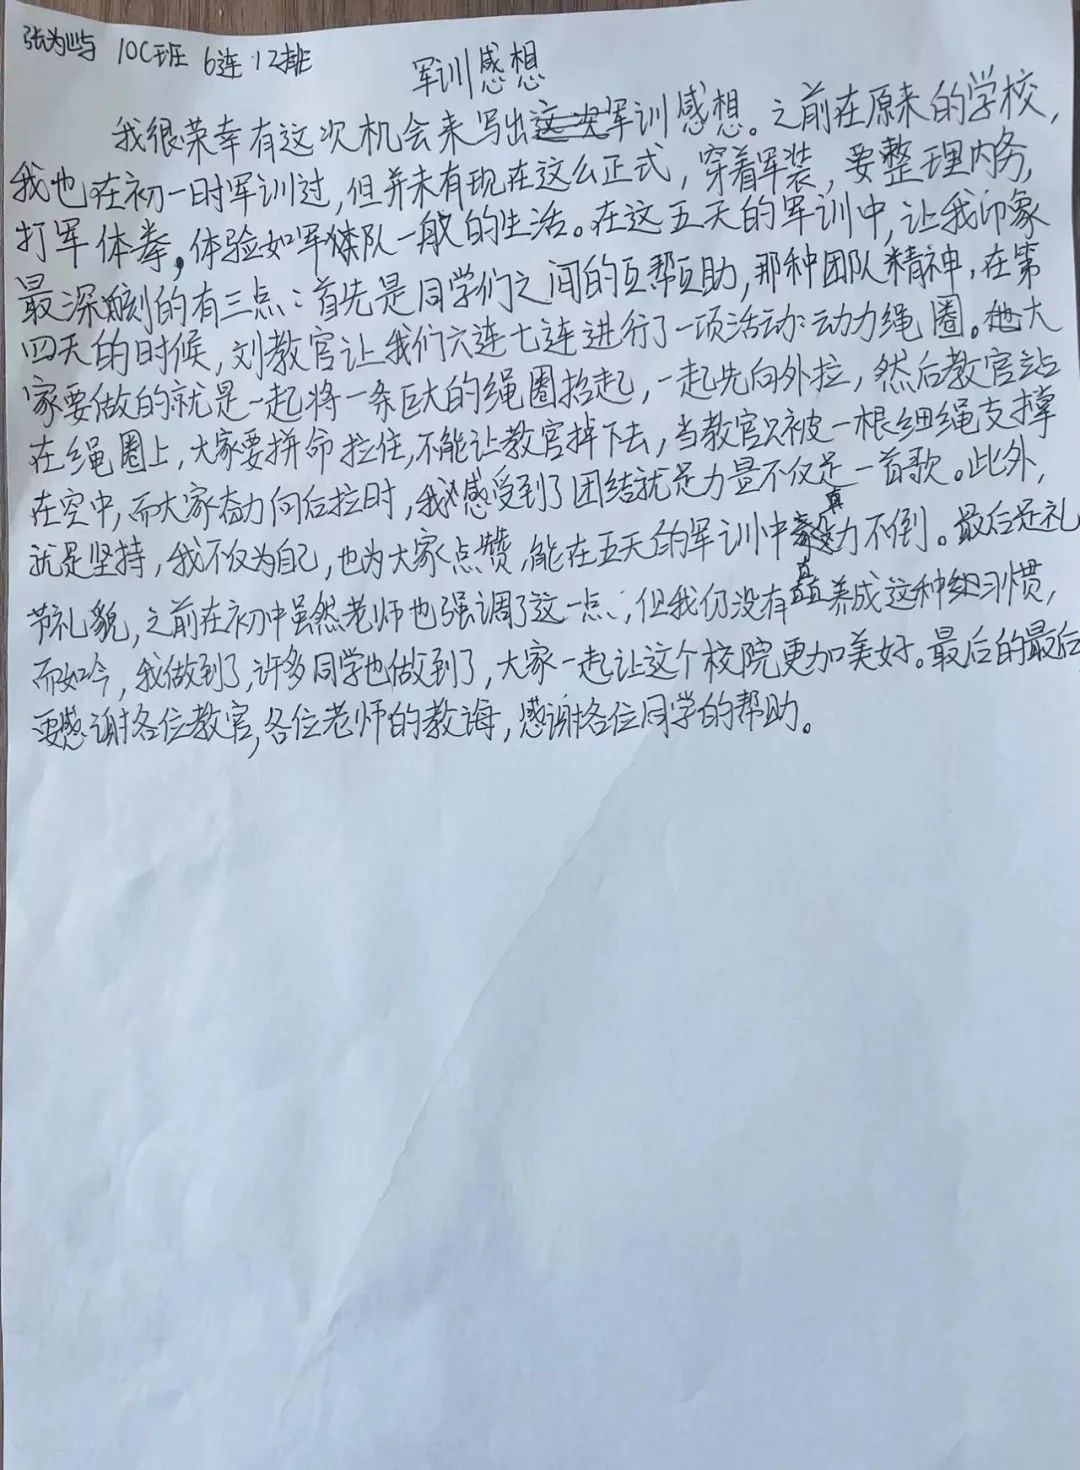 张为屿 10C班 6连12排
军训感想
我很荣幸有这次机会来写出军训感想。之前在原来的学校,
我也在初一时军训过,但并未有现在这么正式,穿着军装,要整理内务,
打军体拳,体验如军队一般的生活。在这五天的军训中,让我印象
最深刻的有三点:首先是同学们之间的互帮互助,那种团队精神,在第
四天的时候,刘教官让我们六连七连进行了一项活动:动力绳圈。大
家要做的就是一起将一条巨大的绳圈抬起,一起先向外拉,然后教官站
在绳圈上,大家要拼命拉住,不能让教官掉下去,当教官只被一根细绳支撑
在空中,而大家奋力向后拉时,我感受到了团结就是力量不仅是一首歌。此外,
就是坚持,我不仅为自己,也为大家点赞,能在五天的军训中真不倒。最后是礼
节礼貌,之前在初中虽然老师也强调了这一点,但我仍没有真养成这种习惯,
而如今,我做到了,许多同学也做到了,大家一起让这个校院更加美好。最后的最后
要感谢各位教官,各位老师的教诲,感谢各位同学的帮助。